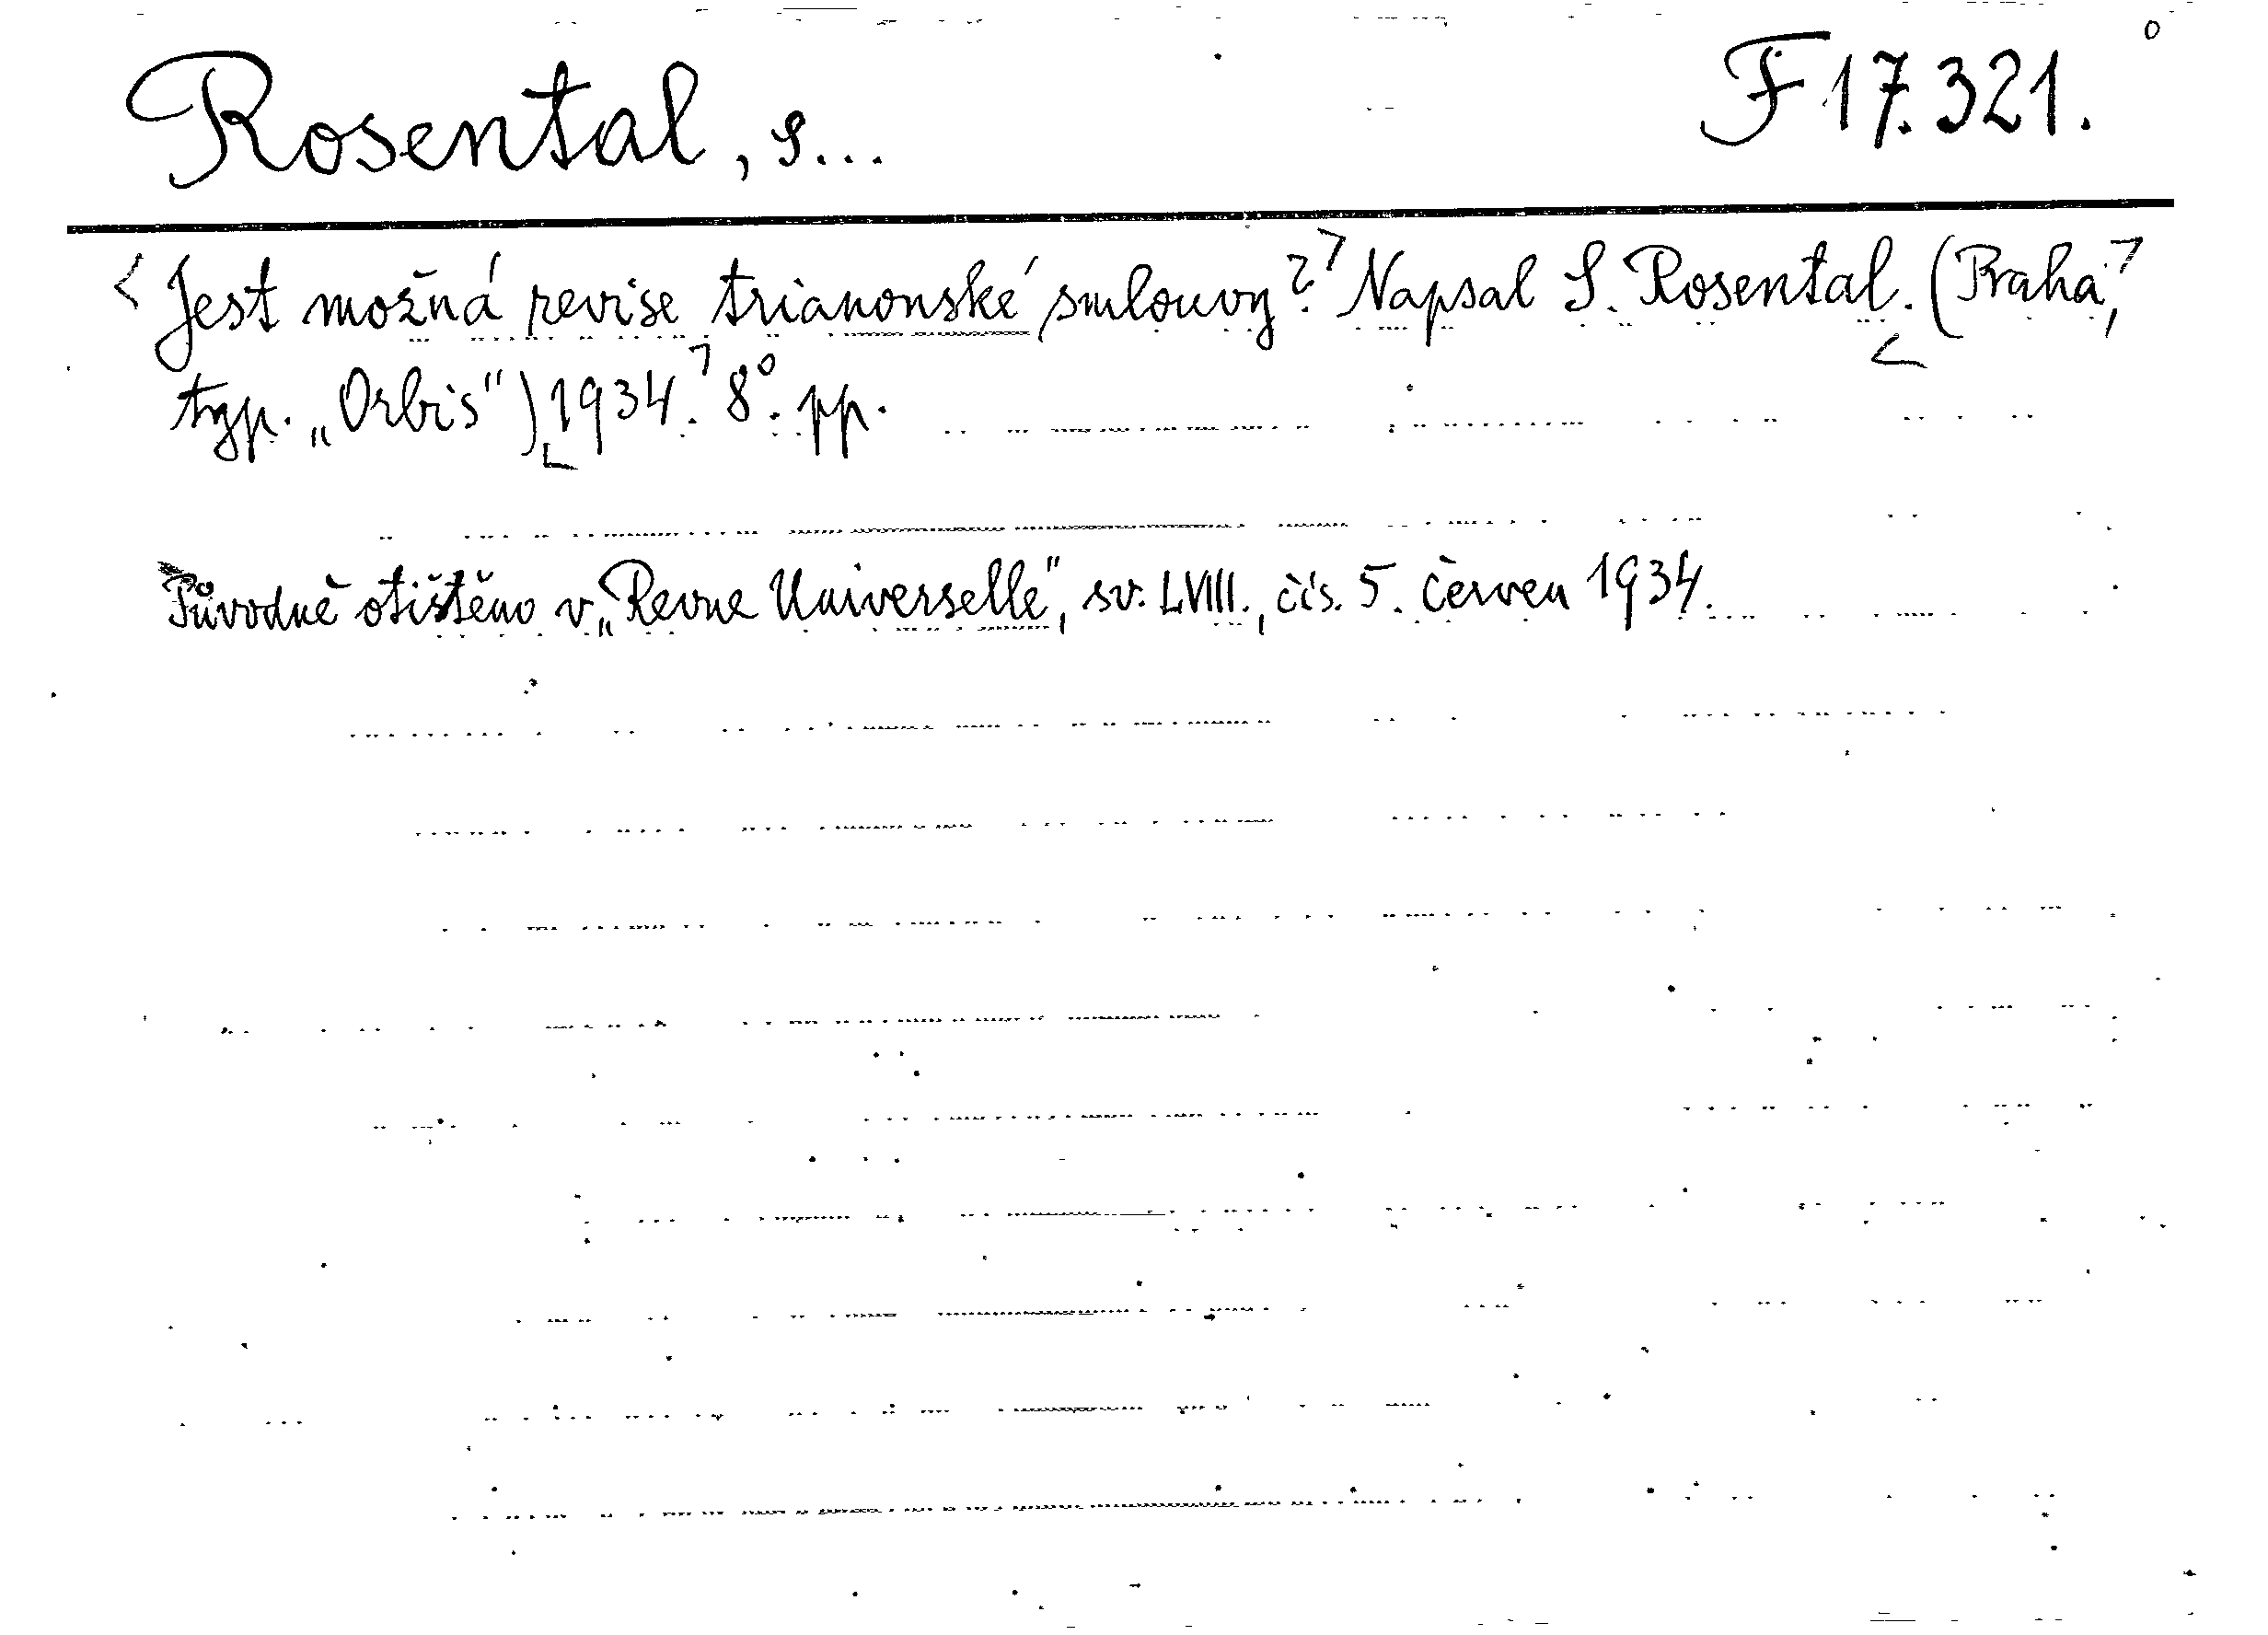 Rosental, S...
F 17.321.
Jest možná revise trianonské smlouvy? Napsal S. Rosental. (Praha,
typ. „Orbis") 1934. 8°. pp.
Původně otištěno v „Revue Universelle", sv. LVIII., čís. 5. červen 1934.